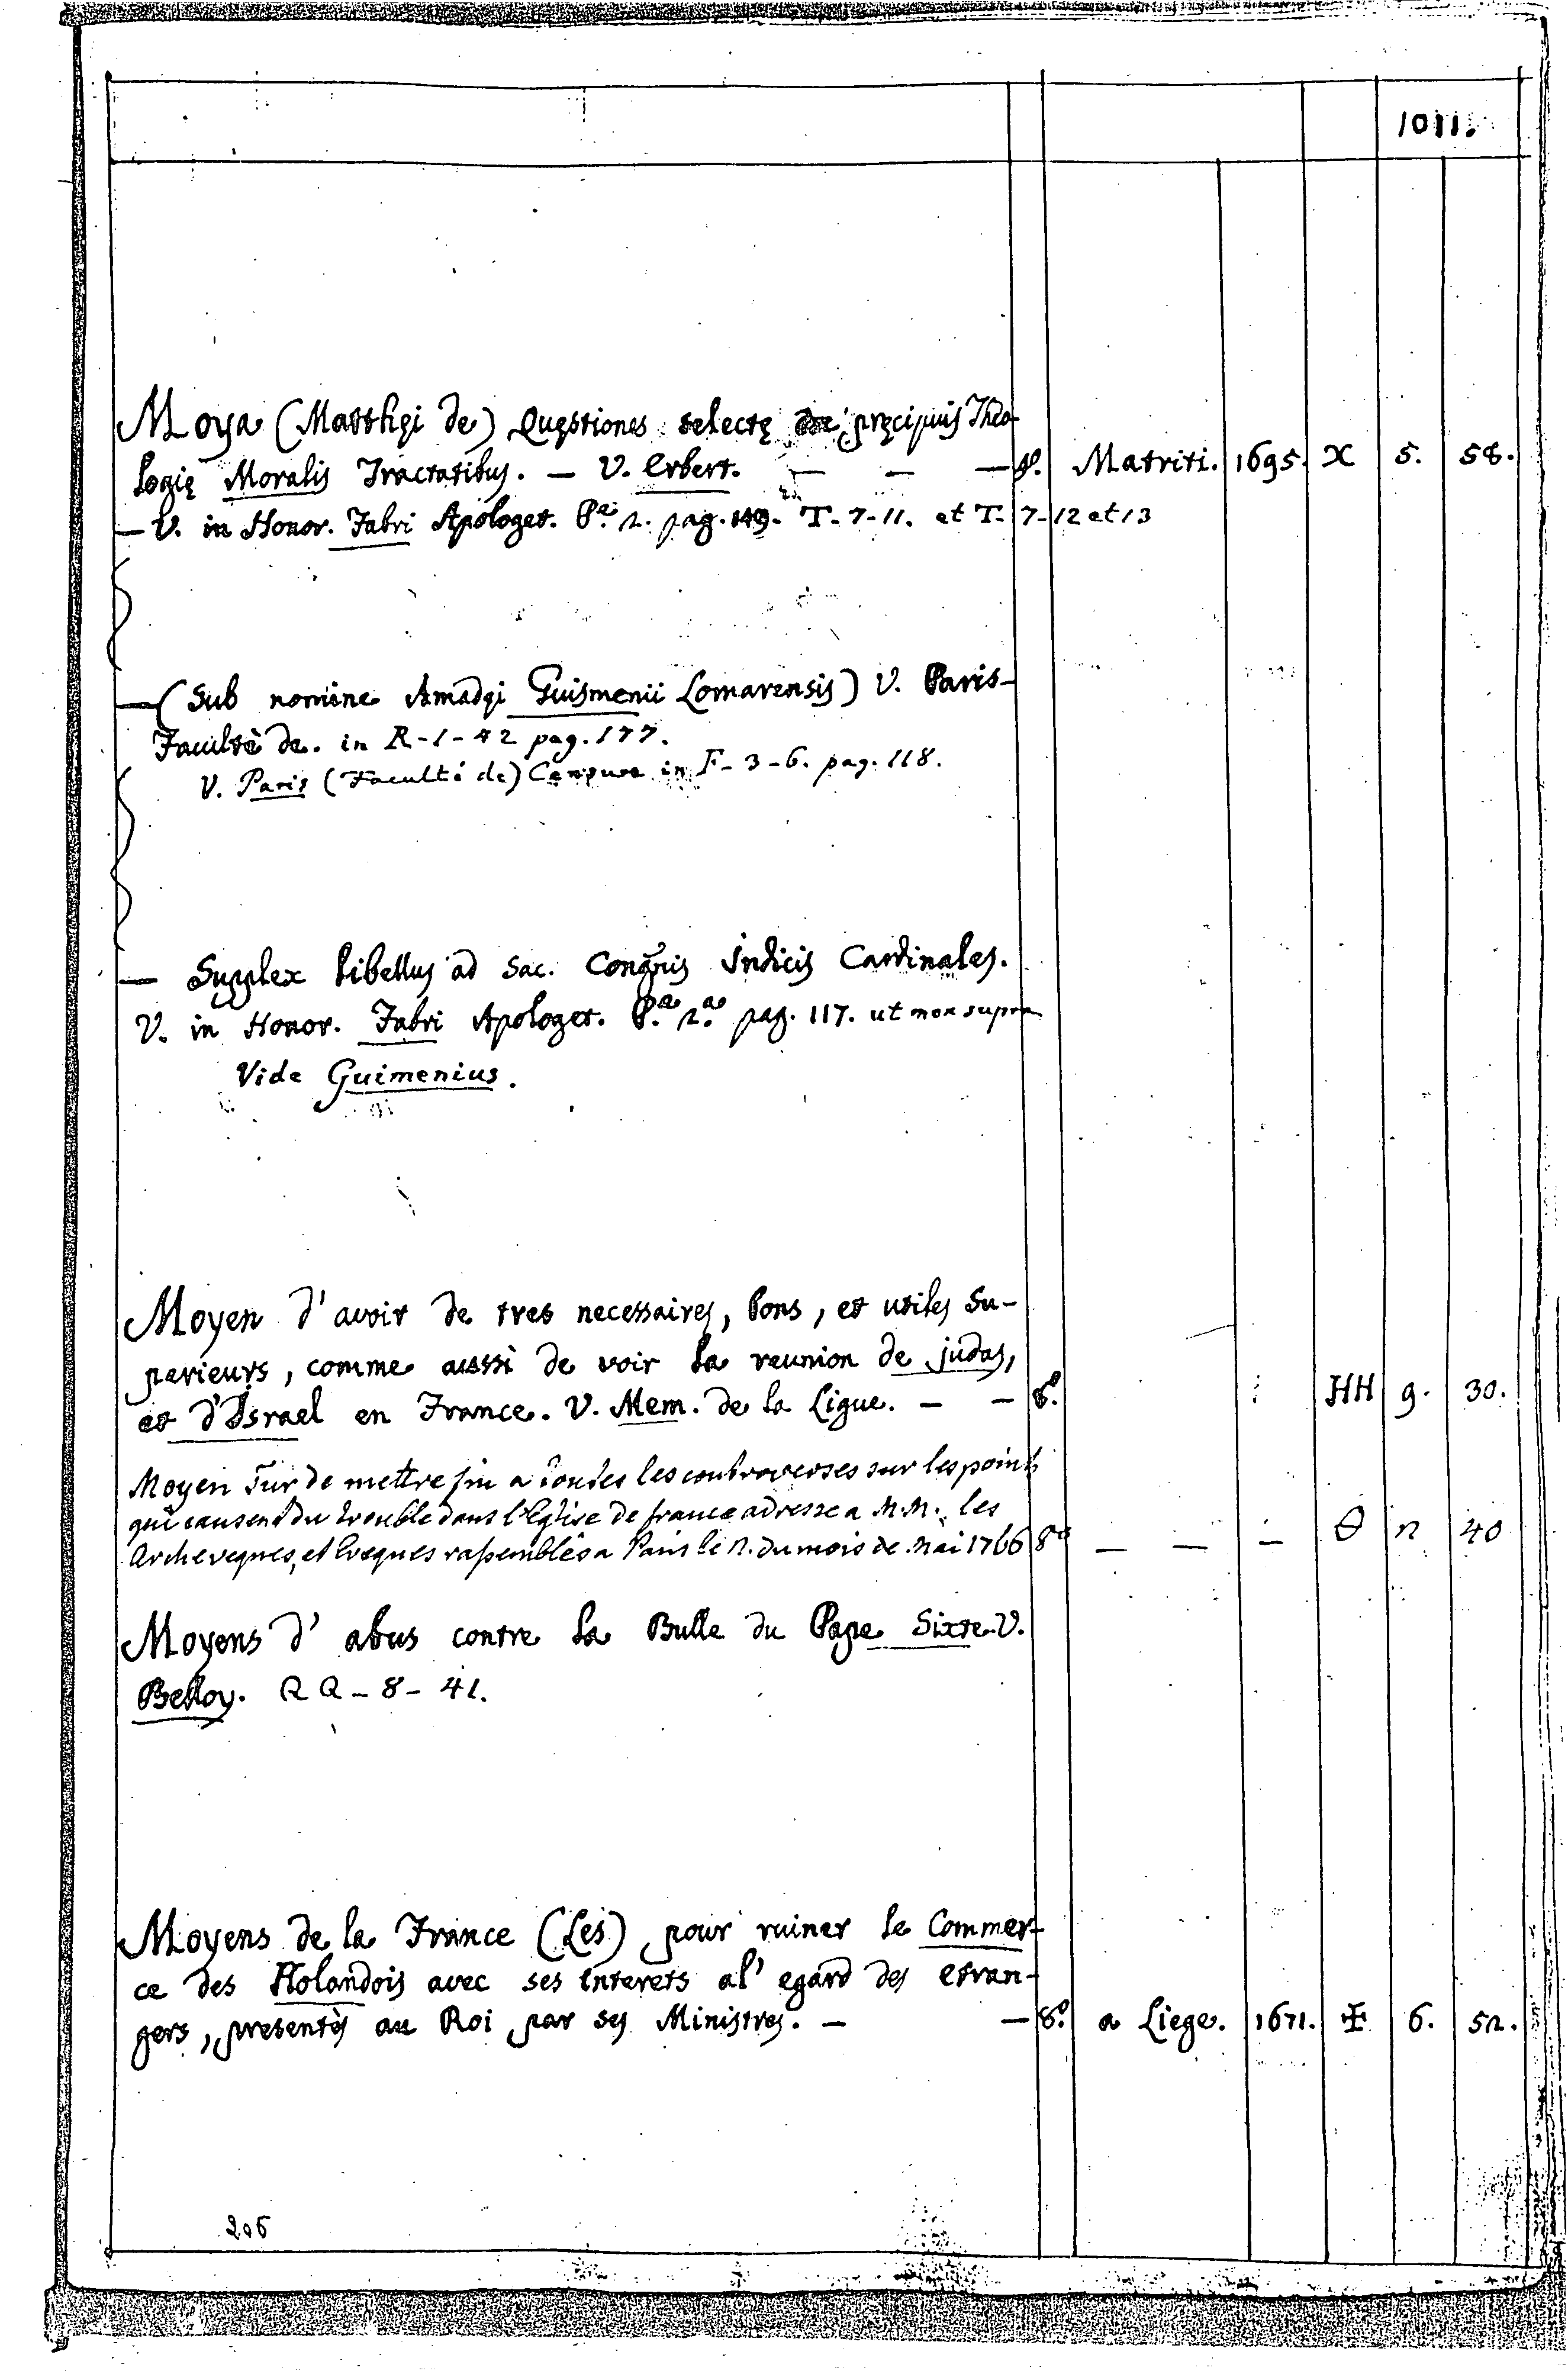 1011.
Moya (Matthęi de) Quęstiones selectę de pręcipuis Theo-
logię Moralis Tractatibus. — V. Erbert. — — — 4º. Matriti. 1695. X 5. 58.
— V. in Honor. Fabri Apologet. P.ª 2. pag. 119. T-7-11. et T-7-12 et 13
— (Sub nomine Amadęi Guismenii Lomarensis) V. Paris-
Facultè de. in R-1-42 pag. 177.
V. Paris (Faculté de) Censure in F-3-6. pag. 118.
— Supplex libellus ad Sac. Congñis Indicis Cardinales.
V. in Honor. Fabri Apologet. P.ª 2.ª pag. 117. ut mox supra
Vide Guimenius.
Moyen d'avoir de tres necessaires, bons, et utiles Su-
perieurs, comme aussi de voir la reunion de judas,
et d'Israel en France. V. Mem. de la Ligue. — — 8º. HH 9. 30.
Moyen sur de mettre fin a toutes les controverses sur les points
qui causent du trouble dans l'Eglise de france adresse a M.M. les
Archeveques, et Eveques rassemblés a Paris le 2. du mois de Mai 1766 8º — — — θ 2 40
Moyens d'abus contre la Bulle du Pape Sixte. V.
Belloy. QQ-8-41.
Moyens de la France (Les) pour ruiner le Commer-
ce des Holandois avec ses interets al'egard des etran-
gers, presentès au Roi par ses Ministres. — — 8º. a Liege. 1671. ✠ 6. 52.
206